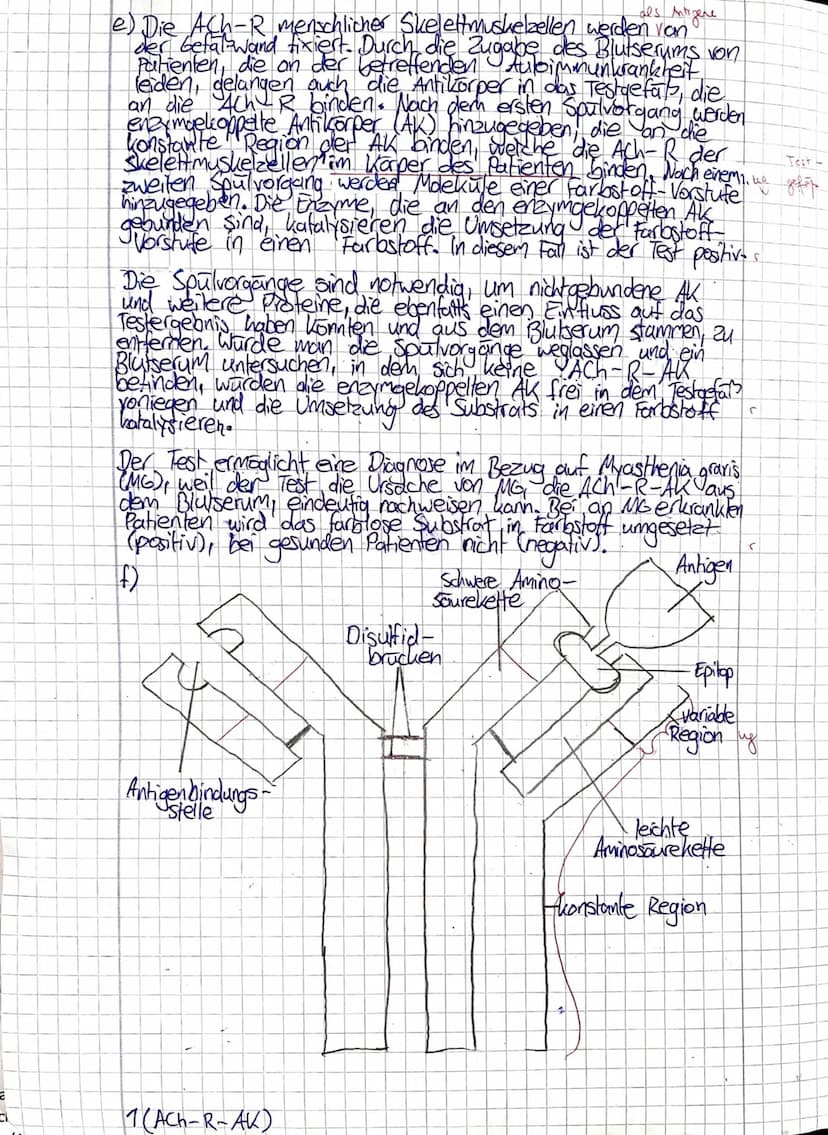 als Antigene
e) Die ACh-R menschlicher Skelettmuskelzellen werden von
der Gefäßwand fixiert. Durch die Zugabe des Blutserums von
Patienten, die an der betreffenden Autoimmunkrankheit
leiden, gelangen auch die Antikörper in das Testgefäß, die
an die ACh-R binden. Nach dem ersten Spülvorgang werden
enzymgekoppelte Antikörper (AK) hinzugegeben, die an die
konstante Region der AK binden, welche die ACh-R der
Skelettmuskelzellen im Körper des Patienten binden. Nach einem
Test-
gefäß
ug
zweiten Spülvorgang werden Moleküle einer Farbstoff-Vorstufe
hinzugegeben. Die Enzyme, die an den enzymgekoppelten AK
gebunden sind, katalysieren die Umsetzung der Farbstoff-
Vorstufe in einen Farbstoff. In diesem Fall ist der Test positiv.
Die Spülvorgänge sind notwendig, um nichtgebundene AK
und weitere Proteine, die ebenfalls einen Einfluss auf das
Testergebnis haben könnten und aus dem Blutserum stammen, zu
entfernen. Würde man die Spülvorgänge weglassen und ein
Blutserum untersuchen, in dem sich keine ACh-R-AK
befinden, würden die enzymgekoppelten AK frei in dem Testgefäß
vorliegen und die Umsetzung des Substrats in einen Farbstoff
katalysieren.
Der Test ermöglicht eine Diagnose im Bezug auf Myasthenia gravis
(MG), weil der Test die Ursache von MG, die ACh-R-AK aus
dem Blutserum, eindeutig nachweisen kann. Bei an MG erkrankten
Patienten wird das farblose Substrat in Farbstoff umgesetzt
(positiv), bei gesunden Patienten nicht (negativ).
f)
Schwere Amino-
säurekette
Antigen
Disulfid-
brücken
Epitop
variable
Region ug
Antigenbindungs-
stelle
leichte
Aminosäurekette
konstante Region
1 (ACh-R-AK)